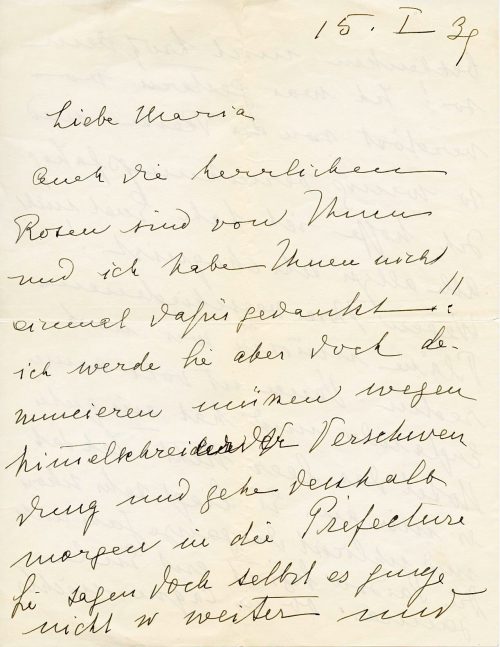 15. I 39
Liebe Maria
Auch die herrlichen
Rosen sind von Ihnen
und ich habe Ihnen nicht
einmal dafür gedankt!!
ich werde Sie aber doch de-
nuncieren müssen wegen
himmelschreiender Verschwen
dung und gehe desshalb
morgen in die Préfecture
Sie sagen doch selbst es ginge
nicht so weiter und